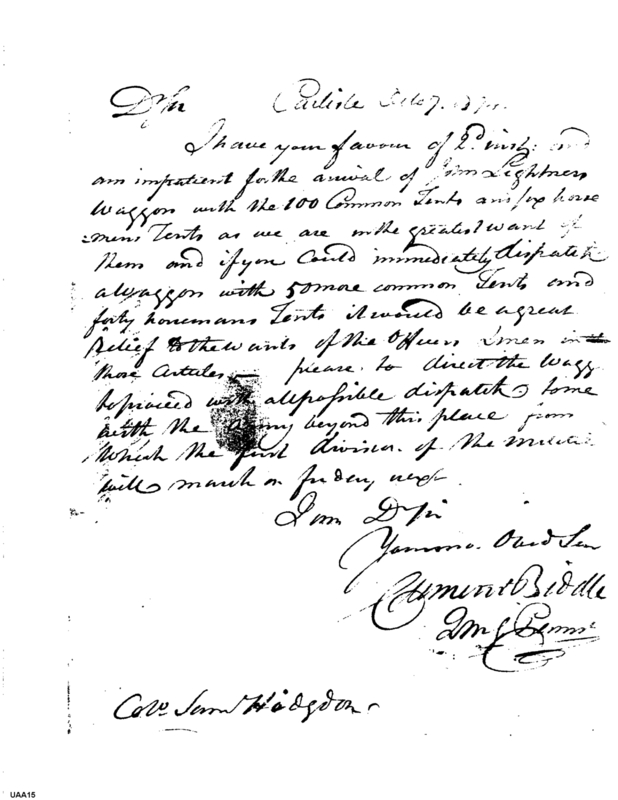 Dr Sir Carlisle Octo 7. 1794.
I have your favour of 2d inst. and
am impatient for the arrival of John Lightners
Waggon with the 100 Common Tents and six horse
=mens Tents as we are in the greatest want of
them and if you Could immediately dispatch
a Waggon with 50 more common Tents and
forty horsemans Tents it would be a great
relief to the wants of the Officers & men in
those Articles — please to direct the Wagg
to proceed with all possible dispatch to me
with the Army beyond this place from
which the first division of the Militia
will march on friday next
I am Dr Sir
Your mo. Obed Ser
Clement Biddle
Q M G Penns
Colo Saml Hodgdon
UAA15